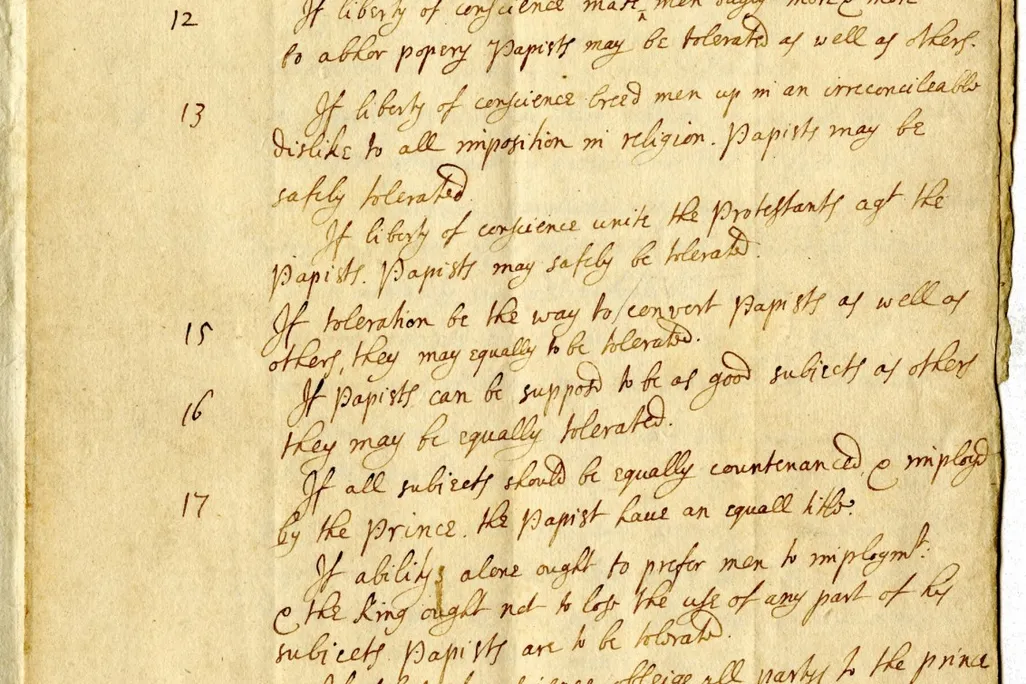 12 If liberty of conscience make men ought more & more
to abhor popery Papists may be tolerated as well as others.
13 If liberty of conscience breed men up in an irreconcileable
dislike to all imposition in religion. Papists may be
safely tolerated
If liberty of conscience unite the Protestants agt the
Papists. Papists may safely be tolerated.
15 If toleration be the way to convert Papists as well as
others, they may equally to be tolerated.
16 If Papists can be supposd to be as good subiects as others
they may be equally tolerated.
17 If all subiects should be equally countenanced, & imployd
by the Prince. the Papist have an equall title.
If abilitys alone ought to prefer men to imploymt:
& the King ought not to lose the use of any part of his
subiects Papists are to be tolerated.
all partys to the prince